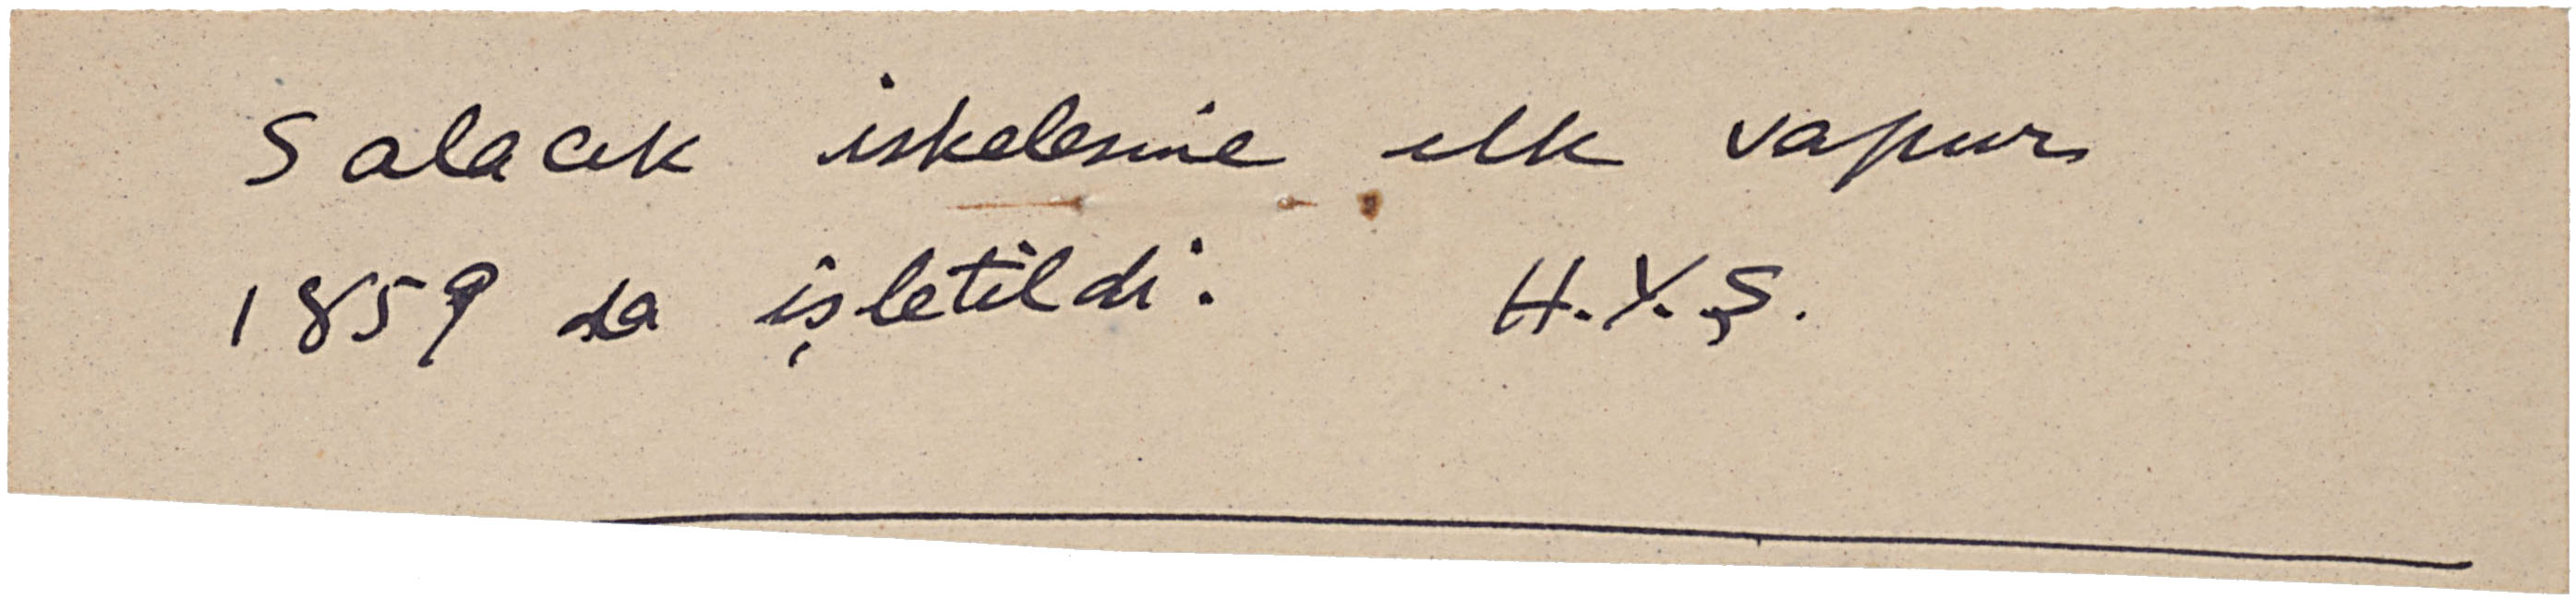 Salacık iskelesine ilk vapur
1859 da işletildi. H.Y.Ş.